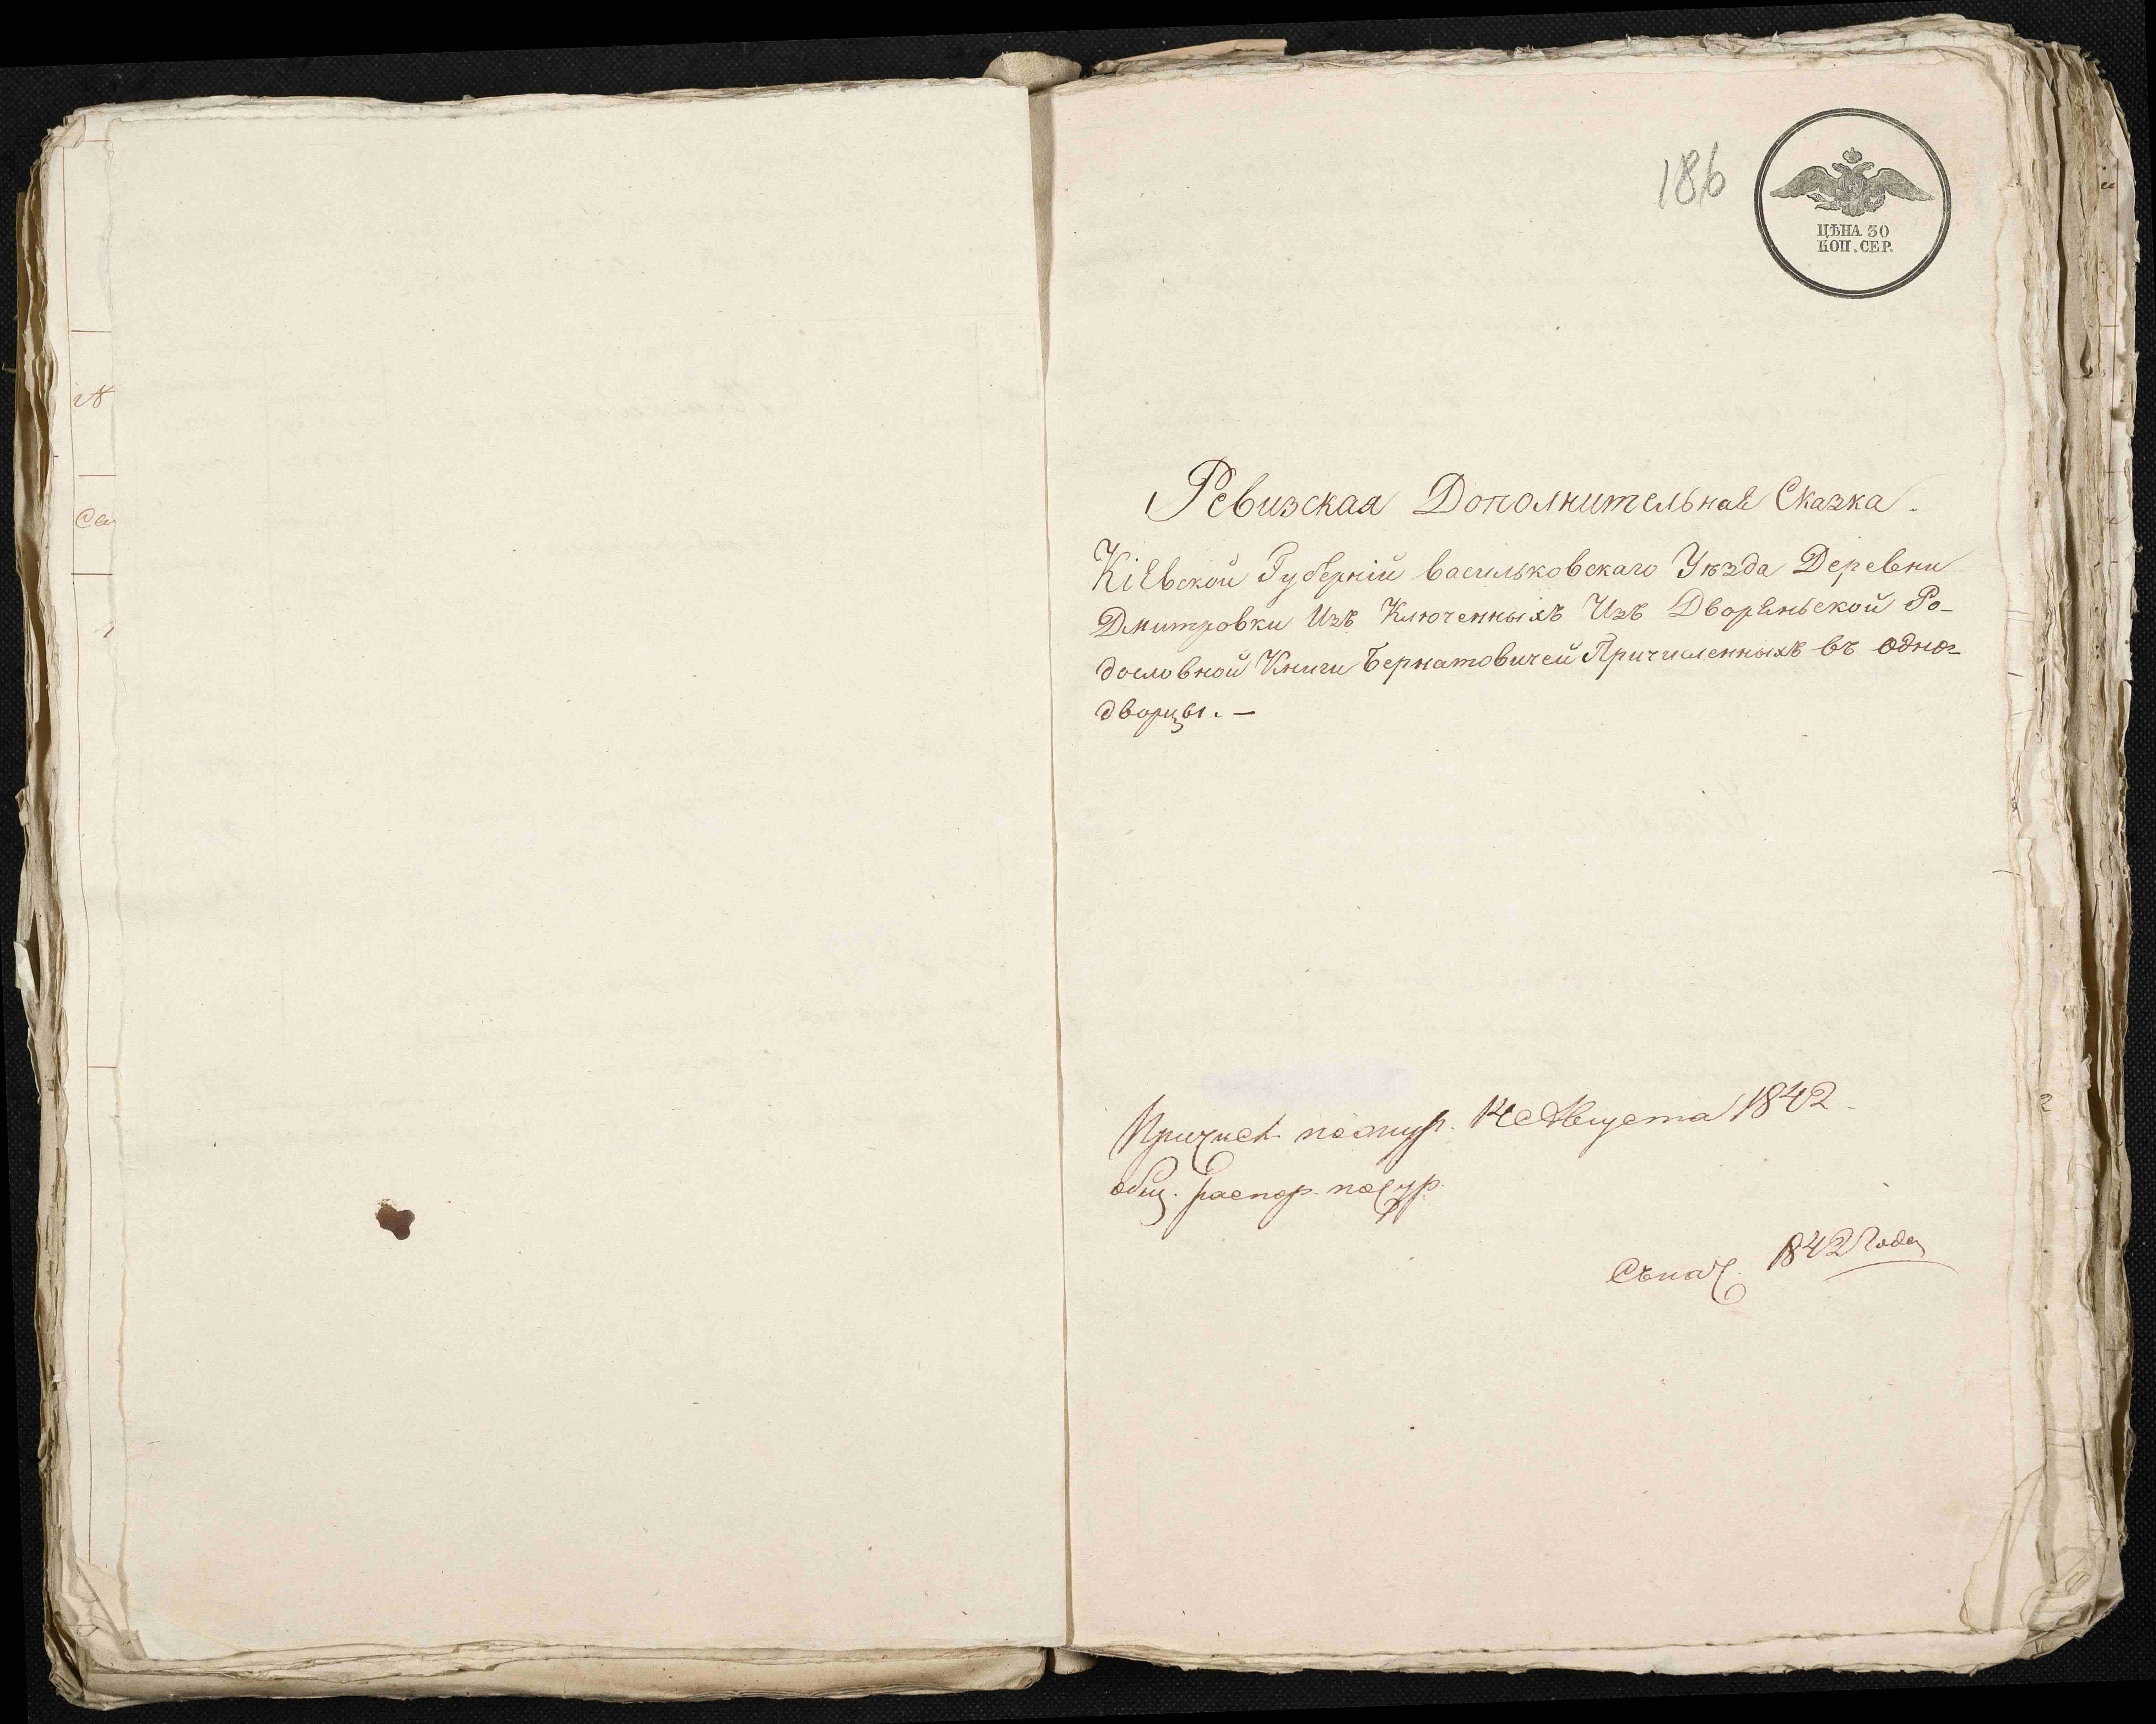 186
ЦѢНА 30
КОП. СЕР.
Ревизская Дополнительная Сказка.
Кіевской Губерніи васильковскаго Уѣзда Деревни
Дмитровки Изъ Ключенныхъ Изъ Дворяньской Ро-
дословной Книги Бернатовичей Причисленныхъ въ одно-
дворцы. —
Причисл. 14 Августа 1842
общ. распор.
Съ пол. 1842 Года